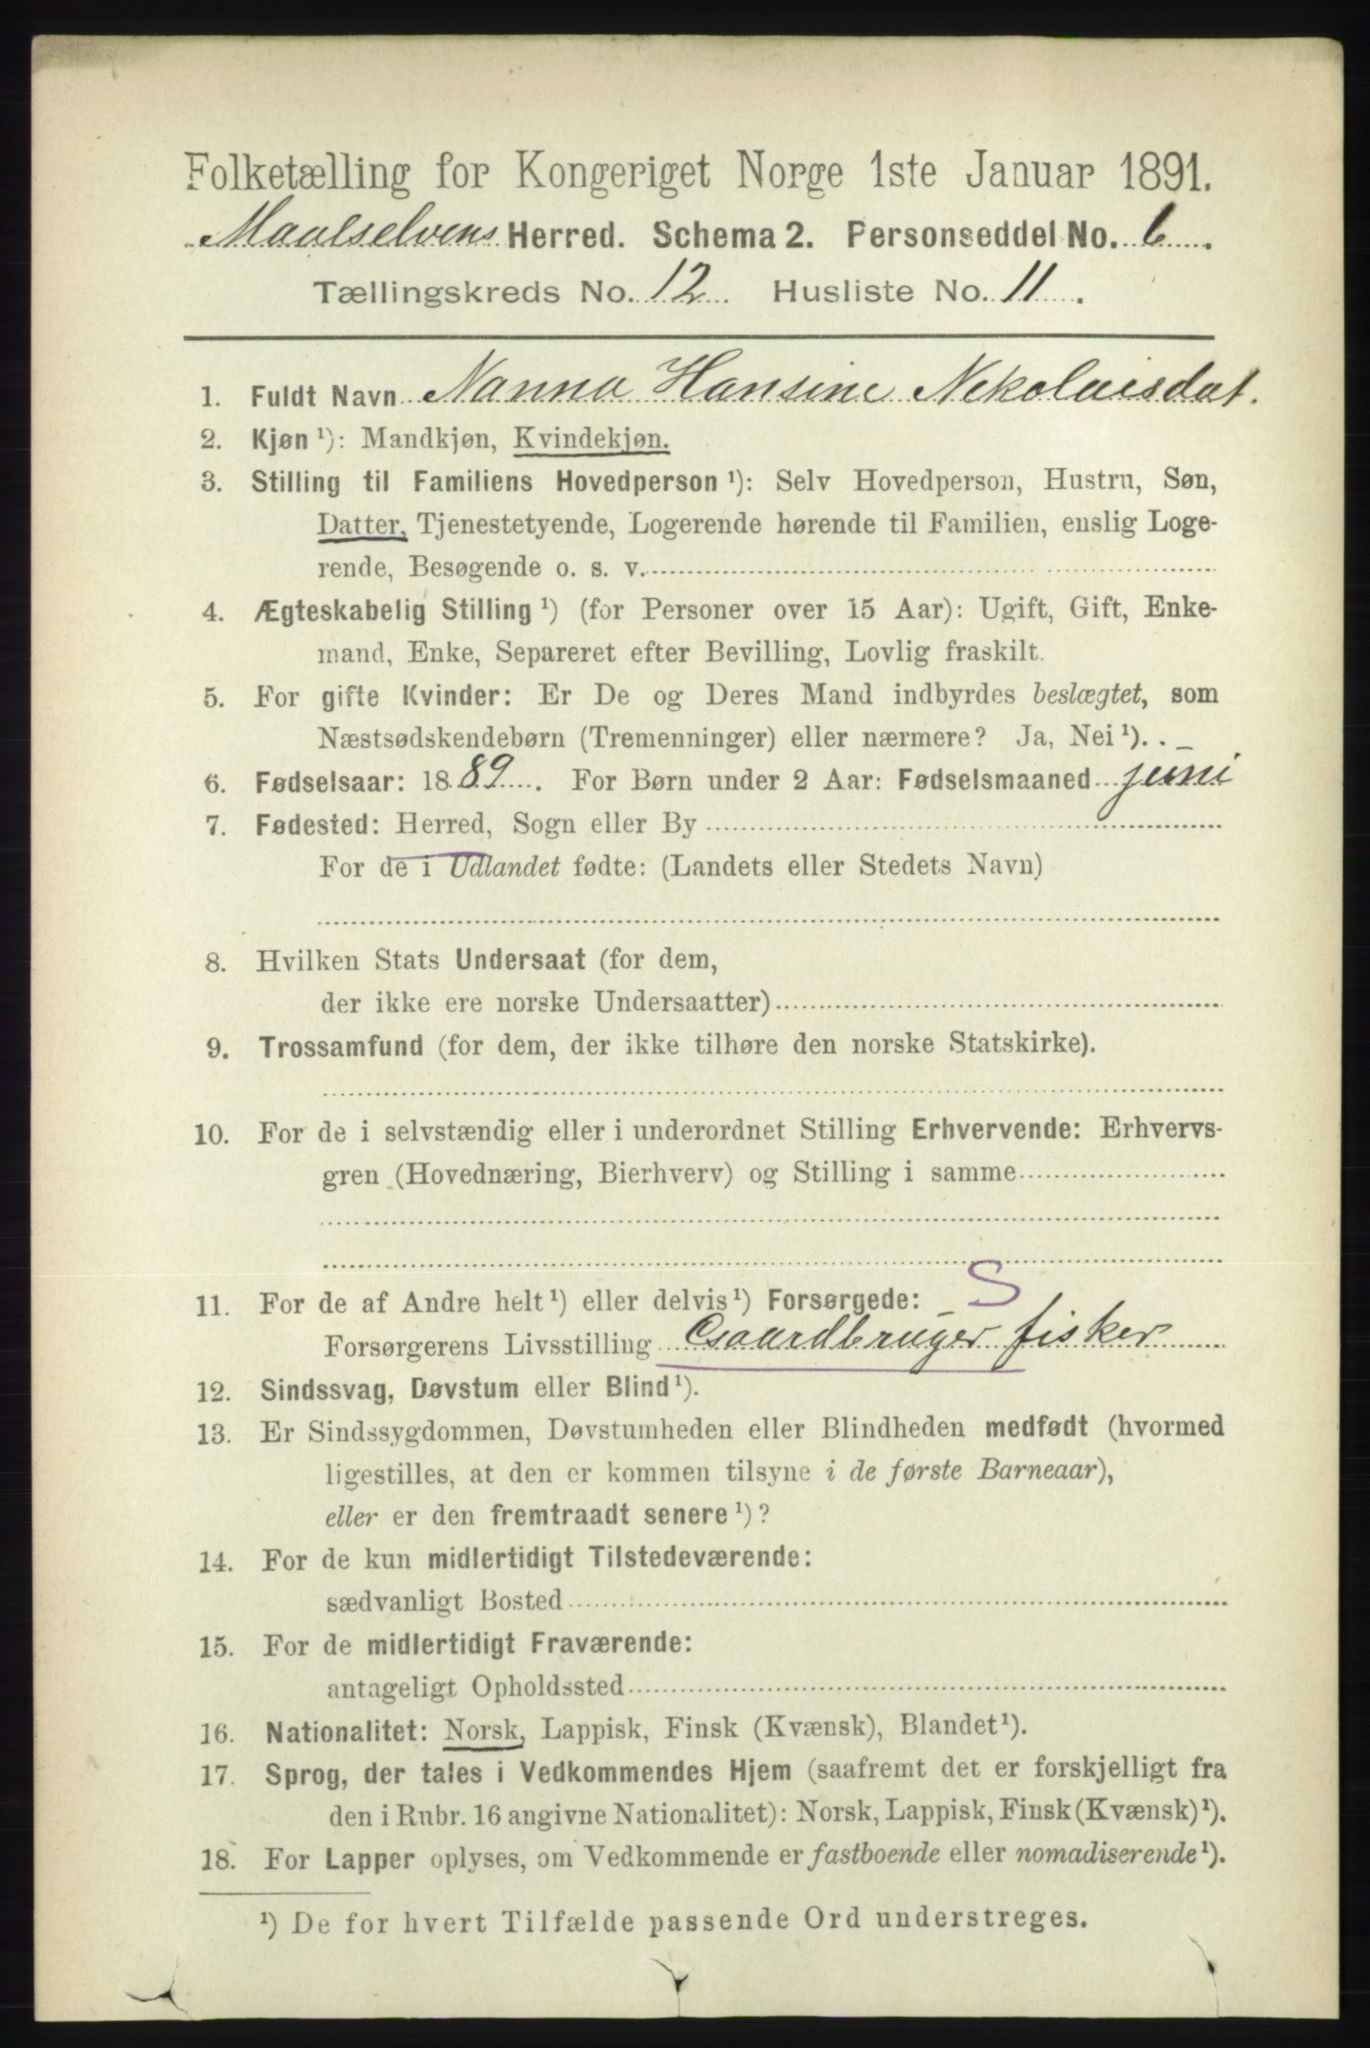 Folketælling for Kongeriget Norge 1ste Januar 1891.
Maalselvens Herred. Schema 2. Personseddel No. 6.
Tællingskreds No. 12 Husliste No. 11.
1. Fuldt Navn Nanna Hansine Nekolaisdat.
2. Kjøn ¹): Mandkjøn, Kvindekjøn.
3. Stilling til Familiens Hovedperson ¹): Selv Hovedperson, Hustru, Søn,
Datter, Tjenestetyende, Logerende hørende til Familien, enslig Loge-
rende, Besøgende o. s. v.
4. Ægteskabelig Stilling ¹) (for Personer over 15 Aar): Ugift, Gift, Enke-
mand, Enke, Separeret efter Bevilling, Lovlig fraskilt.
5. For gifte Kvinder: Er De og Deres Mand indbyrdes beslægtet, som
Næstsødskendebørn (Tremenninger) eller nærmere? Ja, Nei ¹).
6. Fødselsaar: 1889. For Børn under 2 Aar: Fødselsmaaned juni
7. Fødested: Herred, Sogn eller By
For de i Udlandet fødte: (Landets eller Stedets Navn)
8. Hvilken Stats Undersaat (for dem,
der ikke ere norske Undersaatter)
9. Trossamfund (for dem, der ikke tilhøre den norske Statskirke).
10. For de i selvstændig eller i underordnet Stilling Erhvervende: Erhvervs-
gren (Hovednæring, Bierhverv) og Stilling i samme
S
11. For de af Andre helt ¹) eller delvis ¹) Forsørgede:
Forsørgerens Livsstilling Gaardbruger fisker
12. Sindssvag, Døvstum eller Blind ¹).
13. Er Sindssygdommen, Døvstumheden eller Blindheden medfødt (hvormed
ligestilles, at den er kommen tilsyne i de første Barneaar),
eller er den fremtraadt senere ¹)?
14. For de kun midlertidigt Tilstedeværende:
sædvanligt Bosted
15. For de midlertidigt Fraværende:
antageligt Opholdssted
16. Nationalitet: Norsk, Lappisk, Finsk (Kvænsk), Blandet ¹).
17. Sprog, der tales i Vedkommendes Hjem (saafremt det er forskjelligt fra
den i Rubr. 16 angivne Nationalitet): Norsk, Lappisk, Finsk (Kvænsk) ¹).
18. For Lapper oplyses, om Vedkommende er fastboende eller nomadiserende ¹).
¹) De for hvert Tilfælde passende Ord understreges.